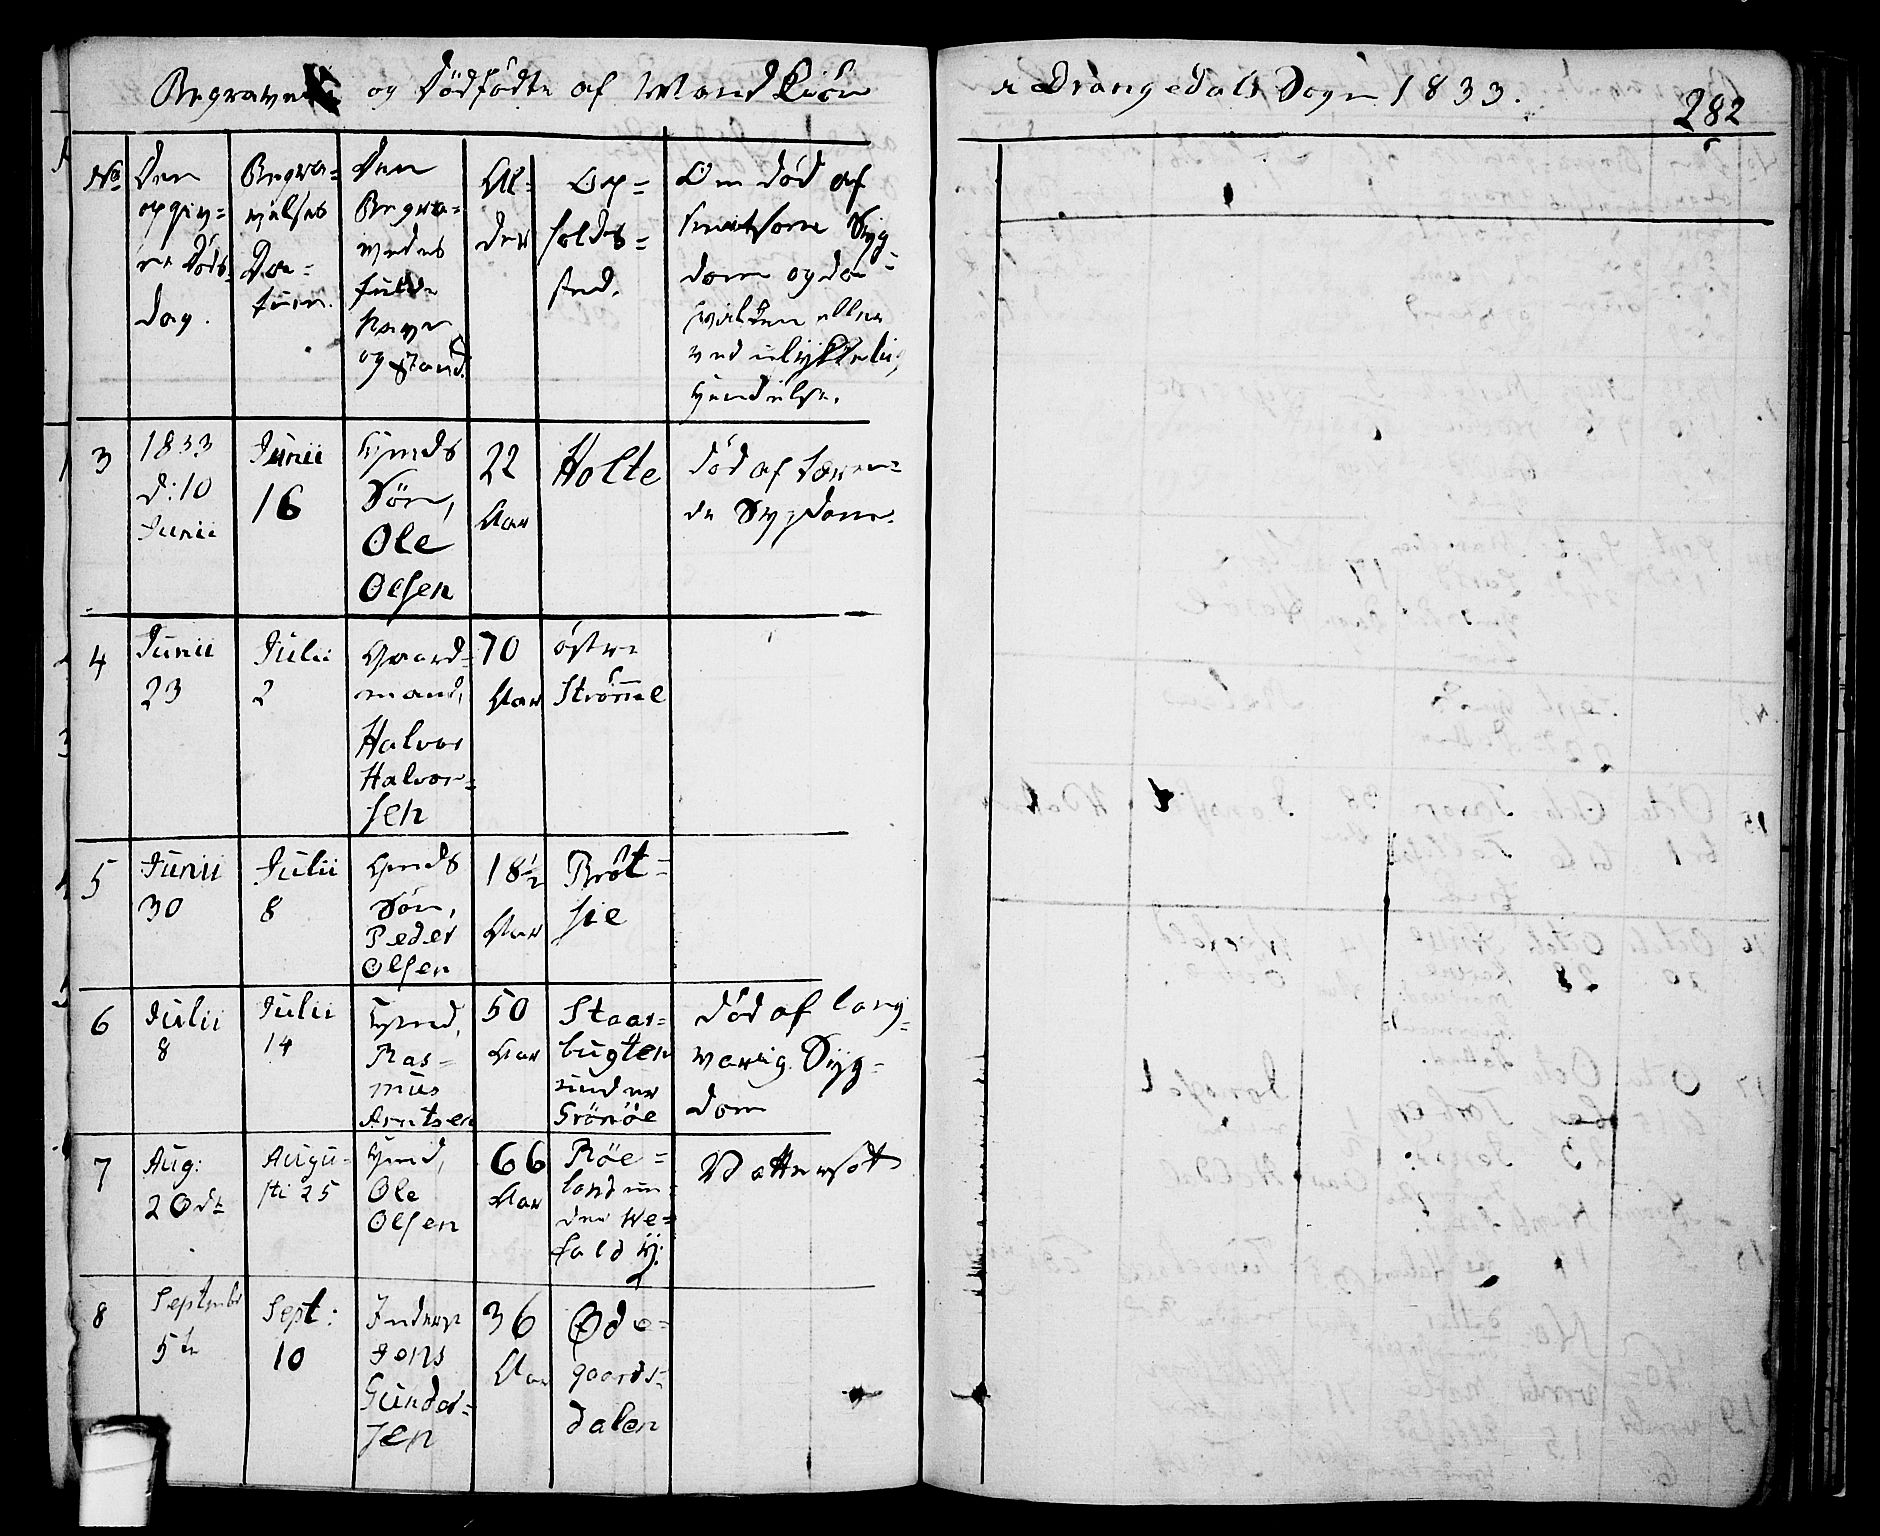 Begravede og Dødfødte af Mandkiön i Drangedals Sogn 1833.
282
No
Den
opgiv=
ne Døds
Dag.
Begra=
velses
Da=
tum.
Den
Begra=
vedes
fulde
Navn
og Stand.
Al=
der
Op=
holds=
sted.
Om død af
smitsom Syg=
dom og da
hvilken eller
ved ulykkelig
Hendelse.
3
1833
d: 10
Junii
Junii
16
Søn,
Ole
Olsen
22
Aar
Holte
død af tæren=
de Sygdom.
4
Junii
23
Julii
2
Gaard=
mand,
Halvor
Halvor=
sen
70
Aar
østre
Strømme
5
Junii
30
Julii
8
Søn,
Peder
Olsen
18½
Aar
Brøt=
sie
6
Julii
8
Julii
14
Ras=
mus
Arntsen
50
Aar
Staar=
bugten
under
Grönöe
død af lang=
varig Syg=
dom
7
Aug:
20de
Augu=
sti 25
Ole
Olsen
66
Aar
Röe=
land un=
der We=
fald
Vattersot
8
September
5te
Sept:
10
Inderst
Jens
Gunder=
sen
36
Aar
Øde=
gaards=
dalen